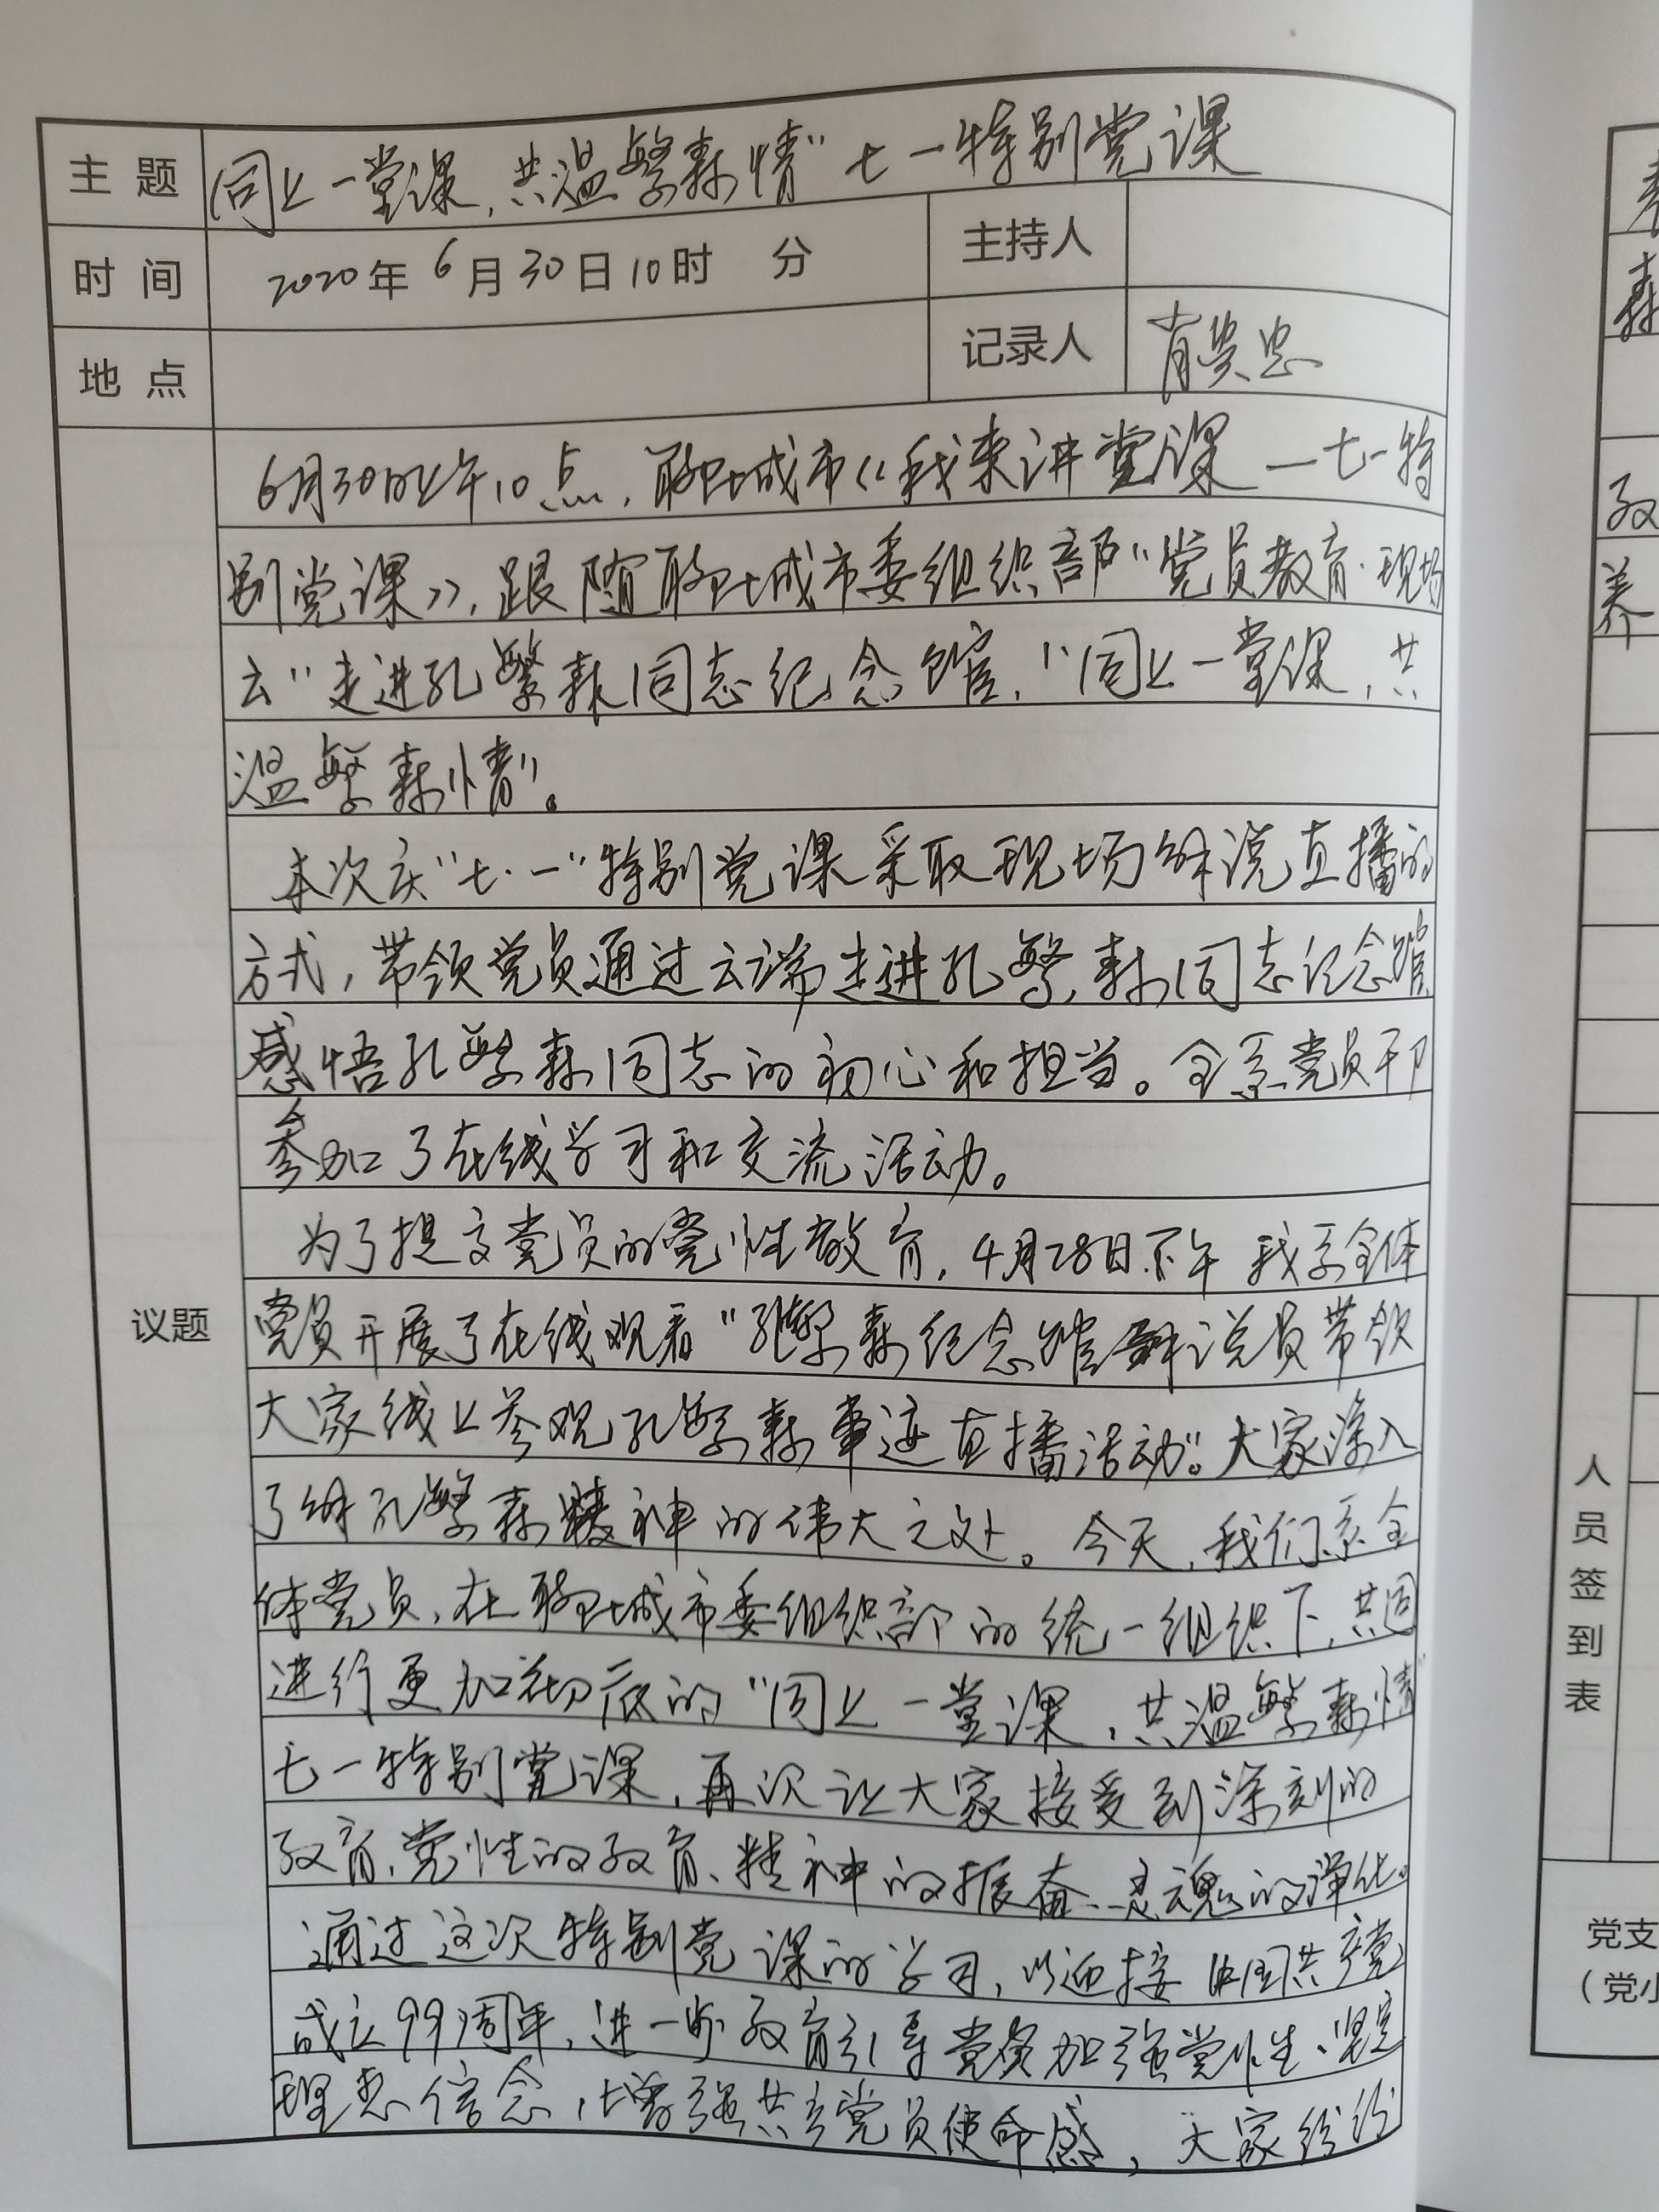 主题 同上一堂课，共温繁森情"七一特别党课
时间 2020年6月30日10时 分 主持人
地点 记录人 肖贵忠
6月30日上午10点，聊城市《我来讲党课—七一特
别党课》，跟随聊城市委组织部"党员教育·现场
云"走进孔繁森同志纪念馆，"同上一堂课，共
温繁森情"。
本次庆"七·一"特别党课采取现场解说直播的
方式，带领党员通过云端走进孔繁森同志纪念馆
感悟孔繁森同志的初心和担当。全系党员干部
参加了在线学习和交流活动。
为了提高党员的党性教育，4月28日下午我系全体
党员开展了在线观看"孔繁森纪念馆解说员带领
大家线上参观孔繁森事迹直播活动"。大家深入
了解孔繁森精神的伟大之处。今天，我们系全
体党员，在聊城市委组织部的统一组织下，共同
进行更加彻底的"同上一堂课，共温繁森情"
七一特别党课，再次让大家接受到深刻的
教育、党性的教育、精神的振奋、灵魂的净化。
通过这次特别党课的学习，以迎接中国共产党
成立99周年，进一步教育引导党员加强党性、坚定
理想信念，增强共产党员使命感，大家纷纷
议题
教
养
人员签到表
党支
（党小